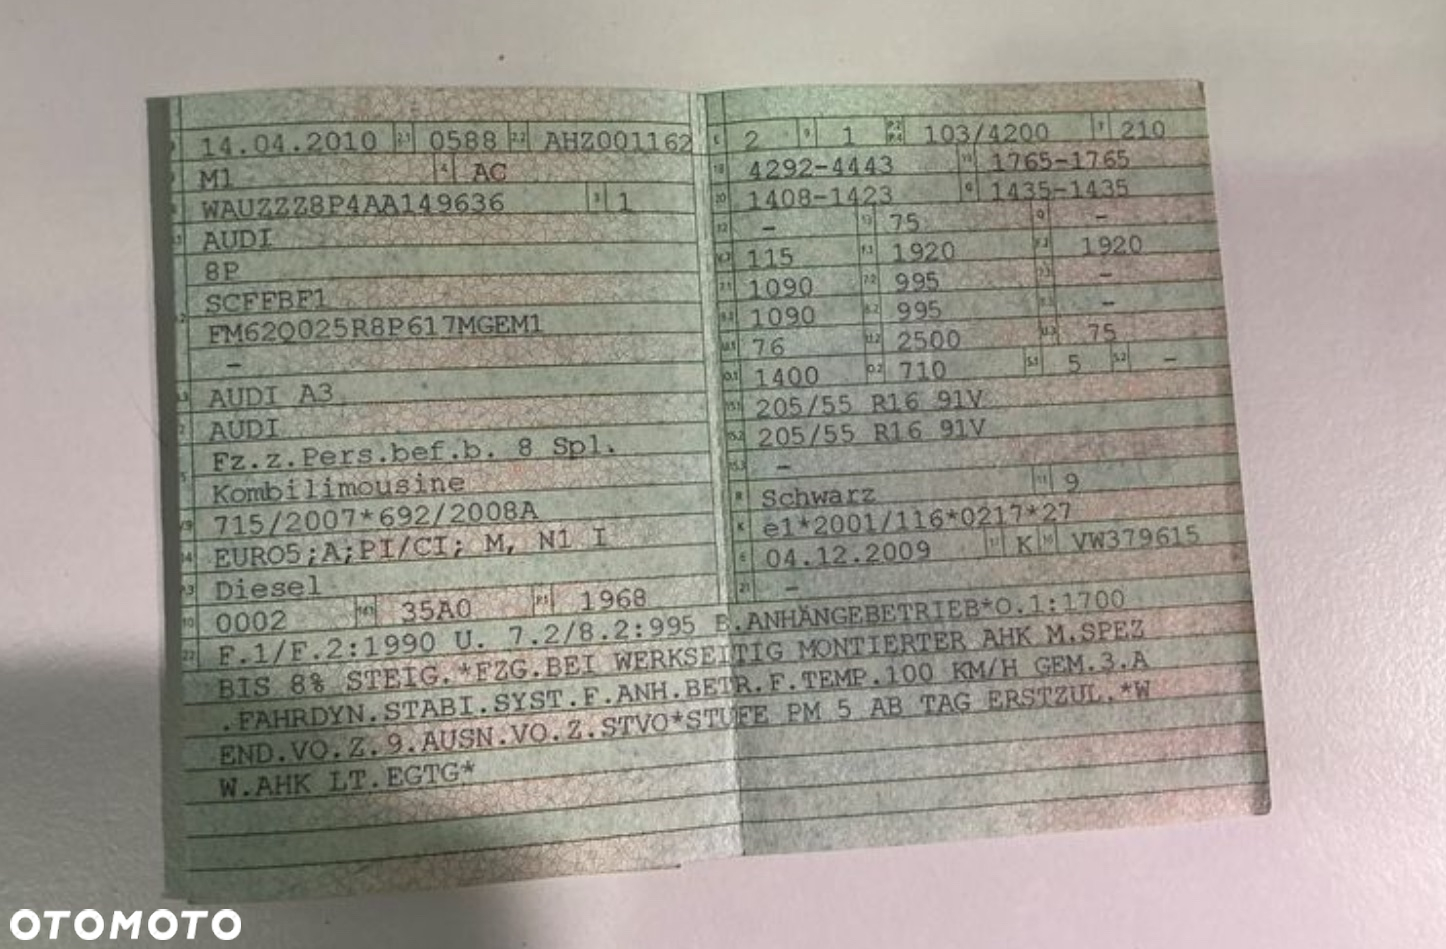 14.04.2010 2.1 0588 2.2 AHZ001162
M1 4 AC
WAUZZZ8P4AA149636 3 1
AUDI
8P
SCFFBF1
FM62Q025R8P617MGEM1
–
AUDI A3
AUDI
Fz.z.Pers.bef.b. 8 Spl.
Kombilimousine
715/2007*692/2008A
EURO5;A;PI/CI; M, N1 I
Diesel
0002 35A0 P.1 1968
2 9 1 P.2 P.4 103/4200 T 210
18 4292–4443 19 1765–1765
20 1408–1423 G 1435–1435
12 – 13 75 Q –
115 F.1 1920 F.2 1920
7.1 1090 7.2 995 7.3 –
8.1 1090 8.2 995 8.3 –
U.1 76 U.2 2500 U.3 75
O.1 1400 O.2 710 S.1 5 S.2 –
15.1 205/55 R16 91V
15.2 205/55 R16 91V
15.3 –
R Schwarz 11 9
K e1*2001/116*0217*27
6 04.12.2009 17 K 16 VW379615
21 –
22 F.1/F.2:1990 U. 7.2/8.2:995 B.ANHÄNGEBETRIEB*O.1:1700
BIS 8% STEIG.*FZG.BEI WERKSEITIG MONTIERTER AHK M.SPEZ
.FAHRDYN.STABI.SYST.F.ANH.BETR.F.TEMP.100 KM/H GEM.3.A
END.VO.Z.9.AUSN.VO.Z.STVO*STUFE PM 5 AB TAG ERSTZUL.*W
W.AHK LT.EGTG*
OTOMOTO